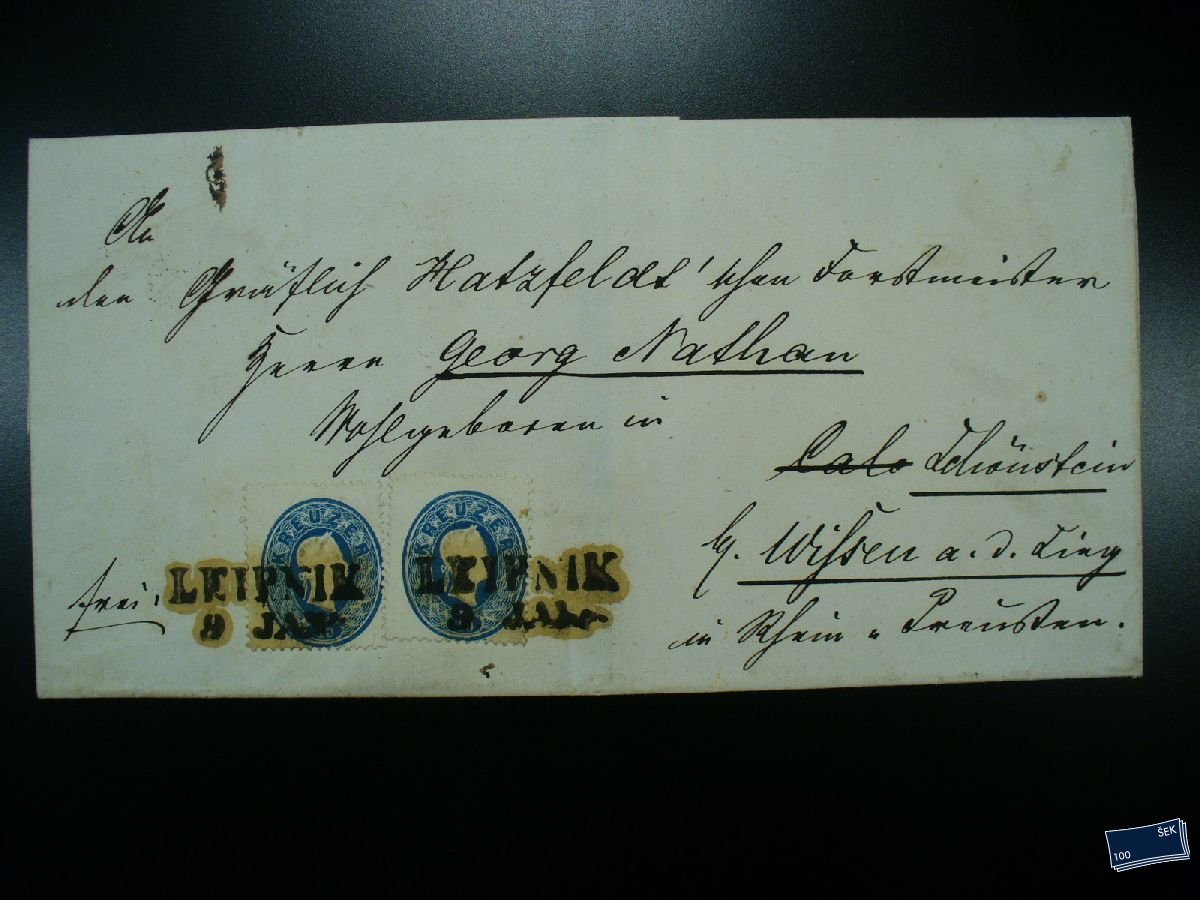 An
den Gräflich Hatzfeldt'schen Forstmeister
Herrn Georg Nathan
Wohlgeboren in
Calo Schönstein
b. Wissen a. d. Sieg
in Rhein = Preussen.
frei.
KREUZER KREUZER
LEIPNIK LEIPNIK
9 JAN. 9 JAN.
ŠEK
100